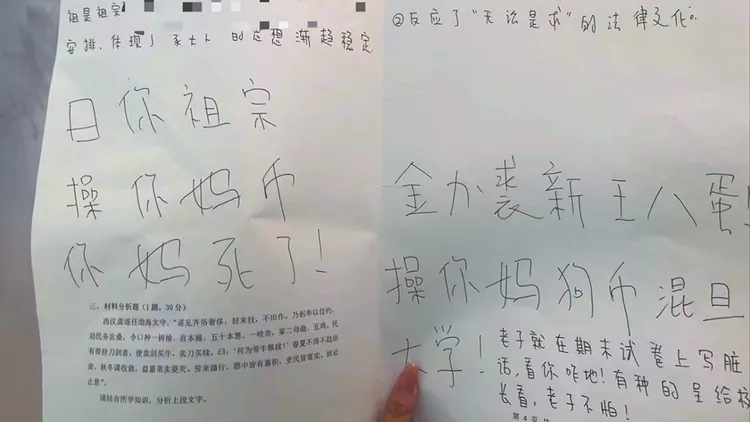 祖是祖宗
安排，体现了
的思想渐趋稳定
日你祖宗
操你妈币
你妈死了！
三、材料分析题（1题，30分）
西汉龚遂任渤海太守，“遂见齐俗奢侈，好末技，不田作，乃躬率以俭约，
劝民务农桑，令口种一树榆、百本薤、五十本葱、一畦韭，家二母彘、五鸡。民
有带持刀剑者，使卖剑买牛，卖刀买犊，曰：‘何为带牛佩犊！’春夏不得不趋田
亩，秋冬课收敛，益蓄果实菱芡。劳来循行，郡中皆有蓄积，吏民皆富实。狱讼
止息”。
请结合所学知识，分析上段文字。
②反应了“无讼是求”的法律文化。
金力裘新王八蛋！
操你妈狗币混旦
大学！
老子就在期末试卷上写脏
话，看你咋地！有种的呈给校
长看，老子不怕！
第 4 页